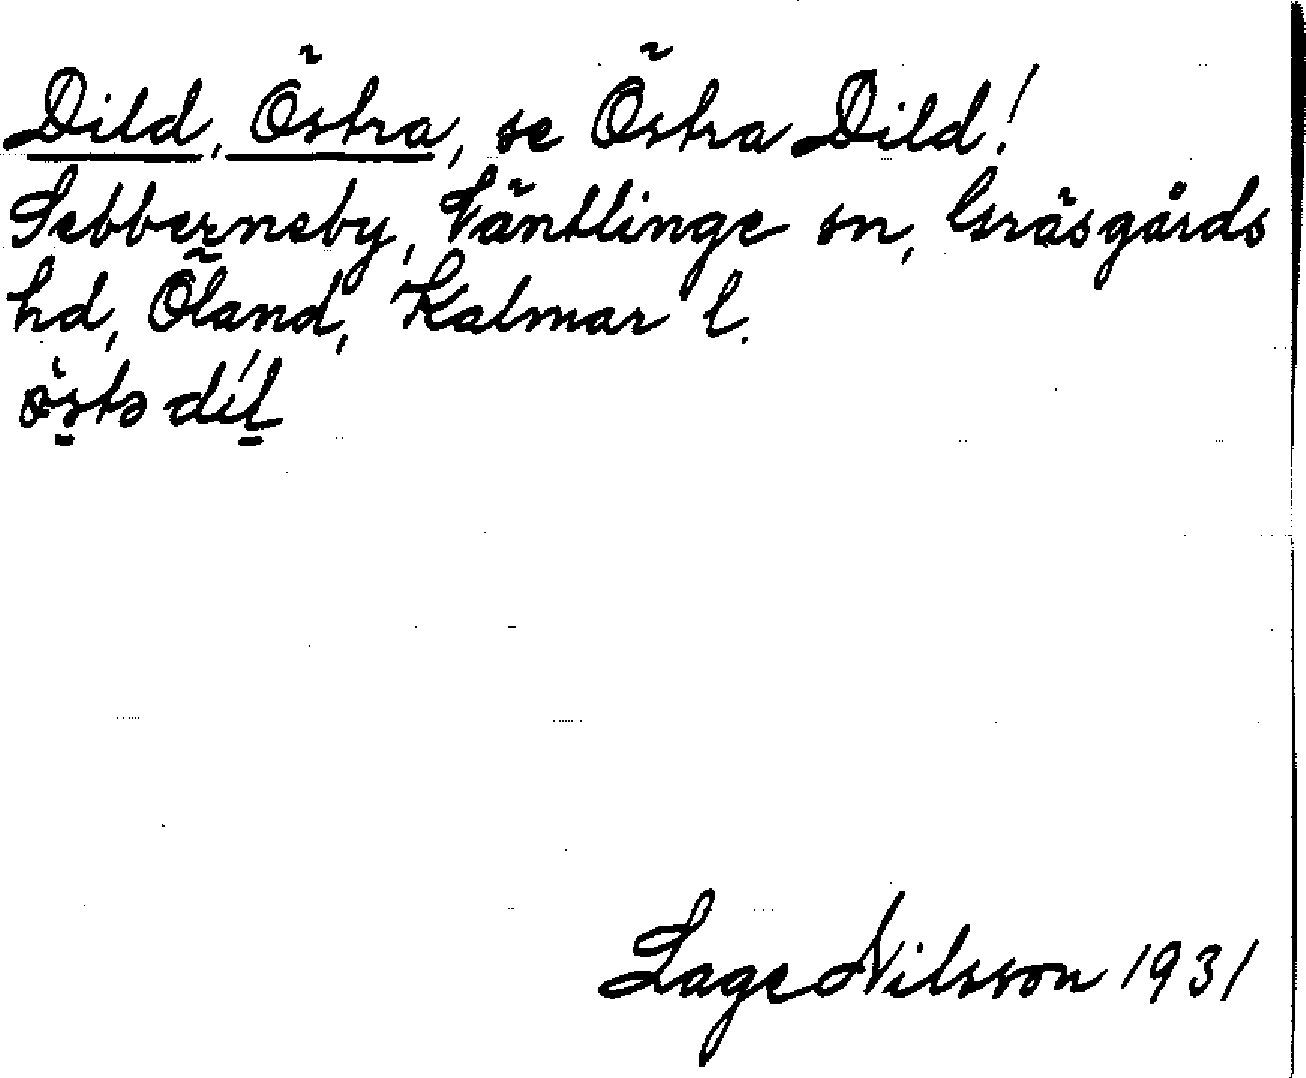 Dild, Östra, se Östra Dild!
Sebberneby, Ventlinge sn, Gräsgårds
hd, Öland, Kalmar l.
östə díl
Lage Nilsson 1931